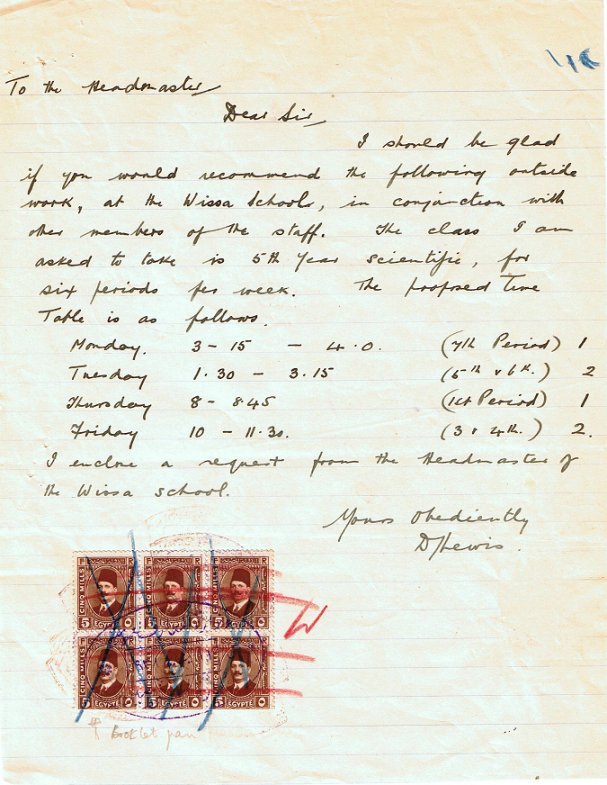 To the Headmaster
Dear Sir,
I should be glad
if you would recommend the following outside
work, at the Wissa Schools, in conjunction with
other members of the staff. The class I am
asked to take is 5th Year Scientific, for
six periods per week. The proposed Time
Table is as follows.
Monday. 3-15 - 4.0. (7th Period) 1
Tuesday 1.30 - 3.15 (5th & 6th.) 2
Thursday 8 - 8.45 (1st Period) 1
Friday 10 - 11.30. (3 & 4th.) 2.
I enclose a request from the Headmaster of
the Wissa school.
Yours Obediently
D Lewis.
CINQ MILLS CINQ MILLS CINQ MILLS
5 EGYPTE ٥ 5 EGYPTE ٥ 5 EGYPTE ٥
CINQ MILLS CINQ MILLS CINQ MILLS
5 EGYPTE ٥ 5 EGYPTE ٥ 5 EGYPTE ٥
booklet pane